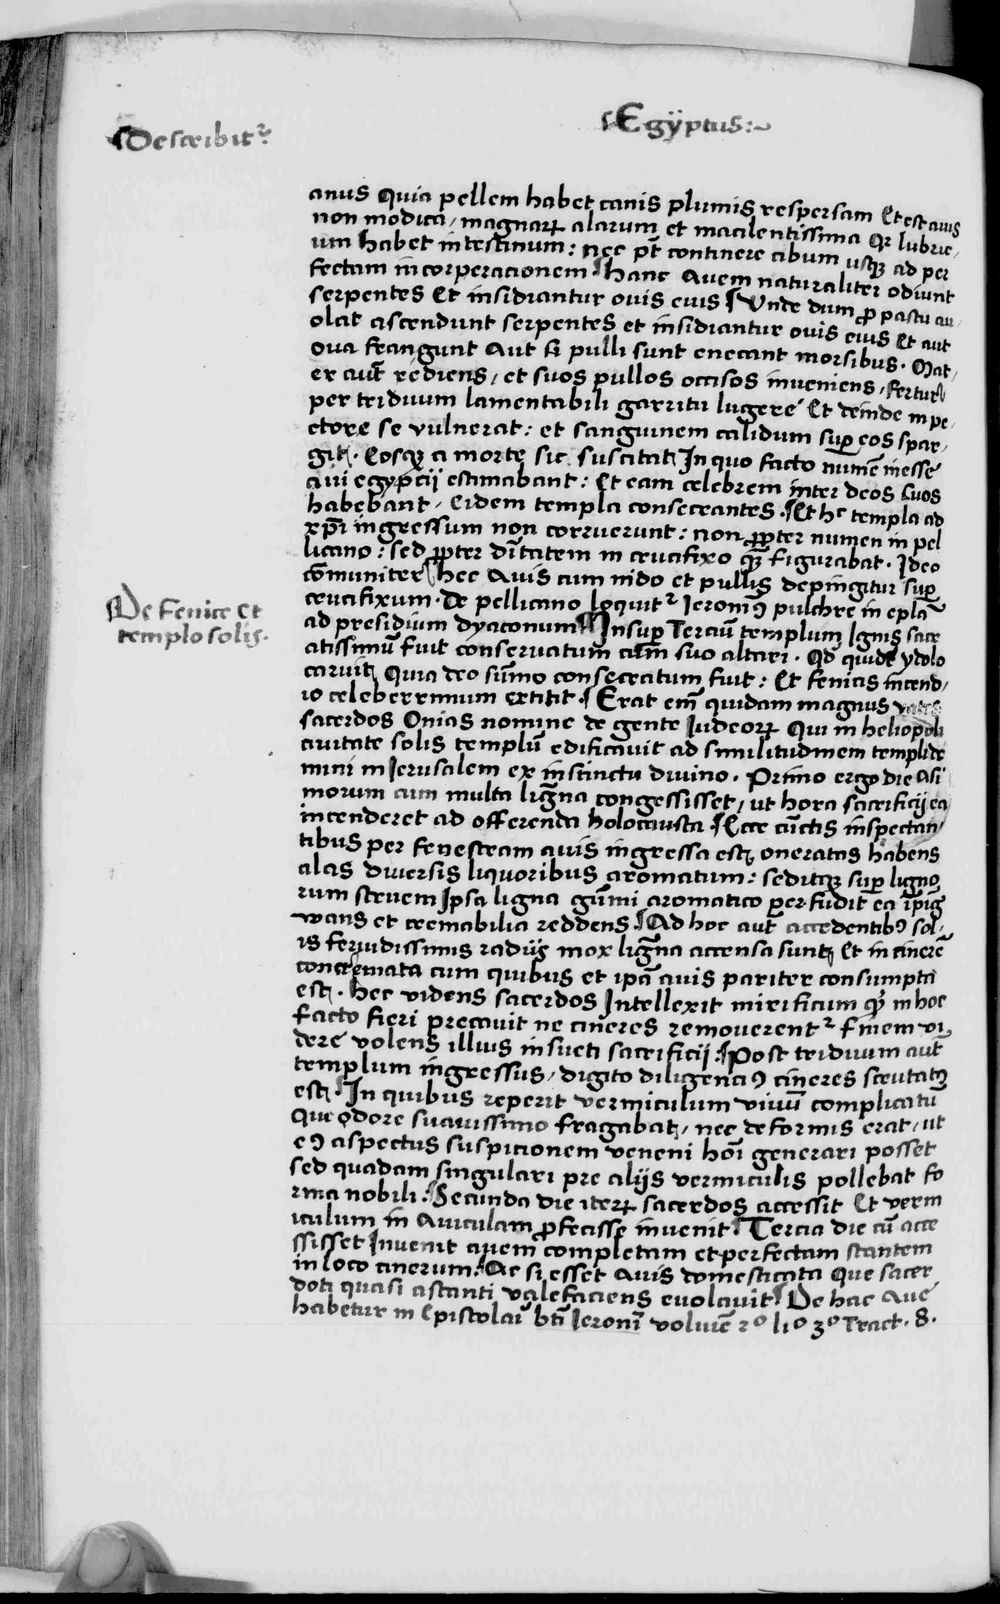 Describit᷑
Egÿptus:~
anus Quia pellem habet canis plumis respersam Et est auis
non modica / magnaꝝ alarum et macilentissima Qꝛ lubric /
um habet intestinum : nec pt̄ continere cibum usqꝫ ad per
fectam incorperacionem ¶ hanc Auem naturaliter odiunt
serpentes Et insidiantur ouis eius ¶ Unde dum ꝓ pastu au /
olat ascendunt serpentes et insidiantur ouis eius Et aut
oua frangunt Aut si pulli sunt enecant morsibus . Mat /
er aut̄ rediens / et suos pullos occisos inueniens / fertur
per triduum lamentabili garritu lugere Et deinde in pe /
ctore se vulnerat : et sanguinem calidum suꝑ eos spar /
git . Eosqꝫ a morte sic suscitat In quo facto numē inesse
aui egypcij estimabant : Et eam celebrem inter deos suos
habebant / Eidem templa consecrantes . ¶ Et hᶜ templa ad
xp̄i ingressum non corruerunt : non ꝓpter numen in pel
licano : sed ꝓpter dīitatem in crucifixo quā figurabat . Ideo
cōmuniter hec Auis cum nido et pullis depingitur suꝑ
crucifixum . De pellicano loquit᷑ Ieronimꝰ pulchre in epl̄a
ad presidium dyaconum ¶ Insuꝑ Terciū templum Ignis sacr
De Fenice et
templo solis .
atissimū fuit conseruatum cum suo altari . Qd quidē ydolo
caruit Quia deo sūmo consecratum fuit : Et fenicis incend /
io celeberrimum extitit . ¶ Erat em̄ quidam magnus vates
sacerdos Onias nomine de gente Iudeoꝝ Qui in heliopoli
ciuitate solis templū edificauit ad similitudinem templi do
mini in Ierusalem ex instinctu diuino . Primo ergo die Asi
morum cum multa ligna congessisset / ut hora sacrificij ea
incenderet ad offerenda holocausta ¶ Ecce cūctis inspectan /
tibus per fenestram auis ingressa est oneratas habens
alas diuersis liquoribus aromatum : seditqꝫ suꝑ ligno
rum struem Ipsa ligna gūmi aromatico perfudit ea īpig
wans et cremabilia reddens ¶ Ad hoc aut̄ accedentibꝰ sol /
is feruidissimis radijs mox ligna accensa sunt Et in cinerē
concremata cum quibus et ip̄a auis pariter consumpta
est . hec videns sacerdos Intellexit mirificum qꝫ in hoc
facto fieri precauit ne cineres remouerent᷑ finem vi /
dere volens illius insueti sacrificij ¶ Post triduum aut̄
templum ingressus / digito diligenciꝰ cineres scrutatꝰ
est ¶ In quibus reperit vermiculum viuū complicatū
Que odore suauissimo fragabat / nec deformis erat / ut
eꝰ aspectus suspicionem veneni hoī generari posset
sed quadam singulari pre alijs vermiculis pollebat fo
rma nobili . ¶ Secunda die iteꝝ sacerdos accessit Et verm
iculum in Auiculam ꝓfecisse inuenit ¶ Tercia die cū acce
ssisset Inuenit auem completam et perfectam stantem
in loco cinerum . ¶ Ac si esset Auis domesticata Que sacer
doti quasi astanti valefaciens euolauit ¶ De hac Aue
habetur in Epistolaꝝ bt̄i Ieronī volumē 2º liº 3º Tract . 8 .